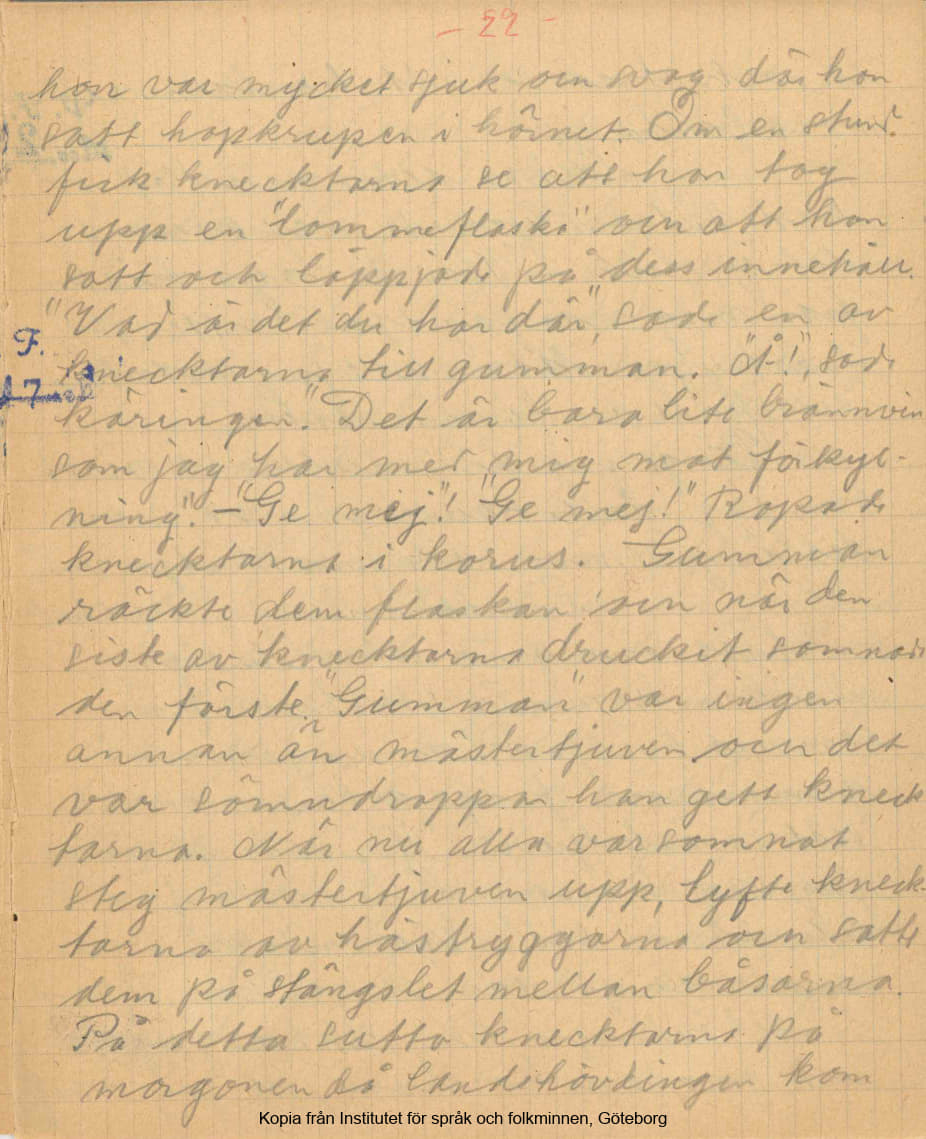 - 22 -
hon var mycket sjuk och svag där hon
satt hopkrupen i hörnet. Om en stund
fick knecktarna se att hon tog
upp en "lommeflaska" och att hon
satt och läppjade på dess innehåll.
"Vad är det du har där", sade en av
F.
knecktarna till gumman. "Å!", sade
käringen". "Det är bara lite brännvin
som jag har med mig mot förkyl-
ning". - "Ge mej"! "Ge mej!" Ropade
knecktarna i korus. Gumman
räckte dem flaskan och när den
siste av knecktarna druckit somnade
den förste. "Gumman" var ingen
annan än mästertjuven och det
var sömndroppar han gett kneck
tarna. När nu alla var somnat
steg mästertjuven upp, lyfte kneck-
tarna av hästryggarna och satte
dem på stängslet mellan båsarna.
På detta sutto knecktarna på
morgonen då landshövdingen kom
Kopia från Institutet för språk och folkminnen, Göteborg